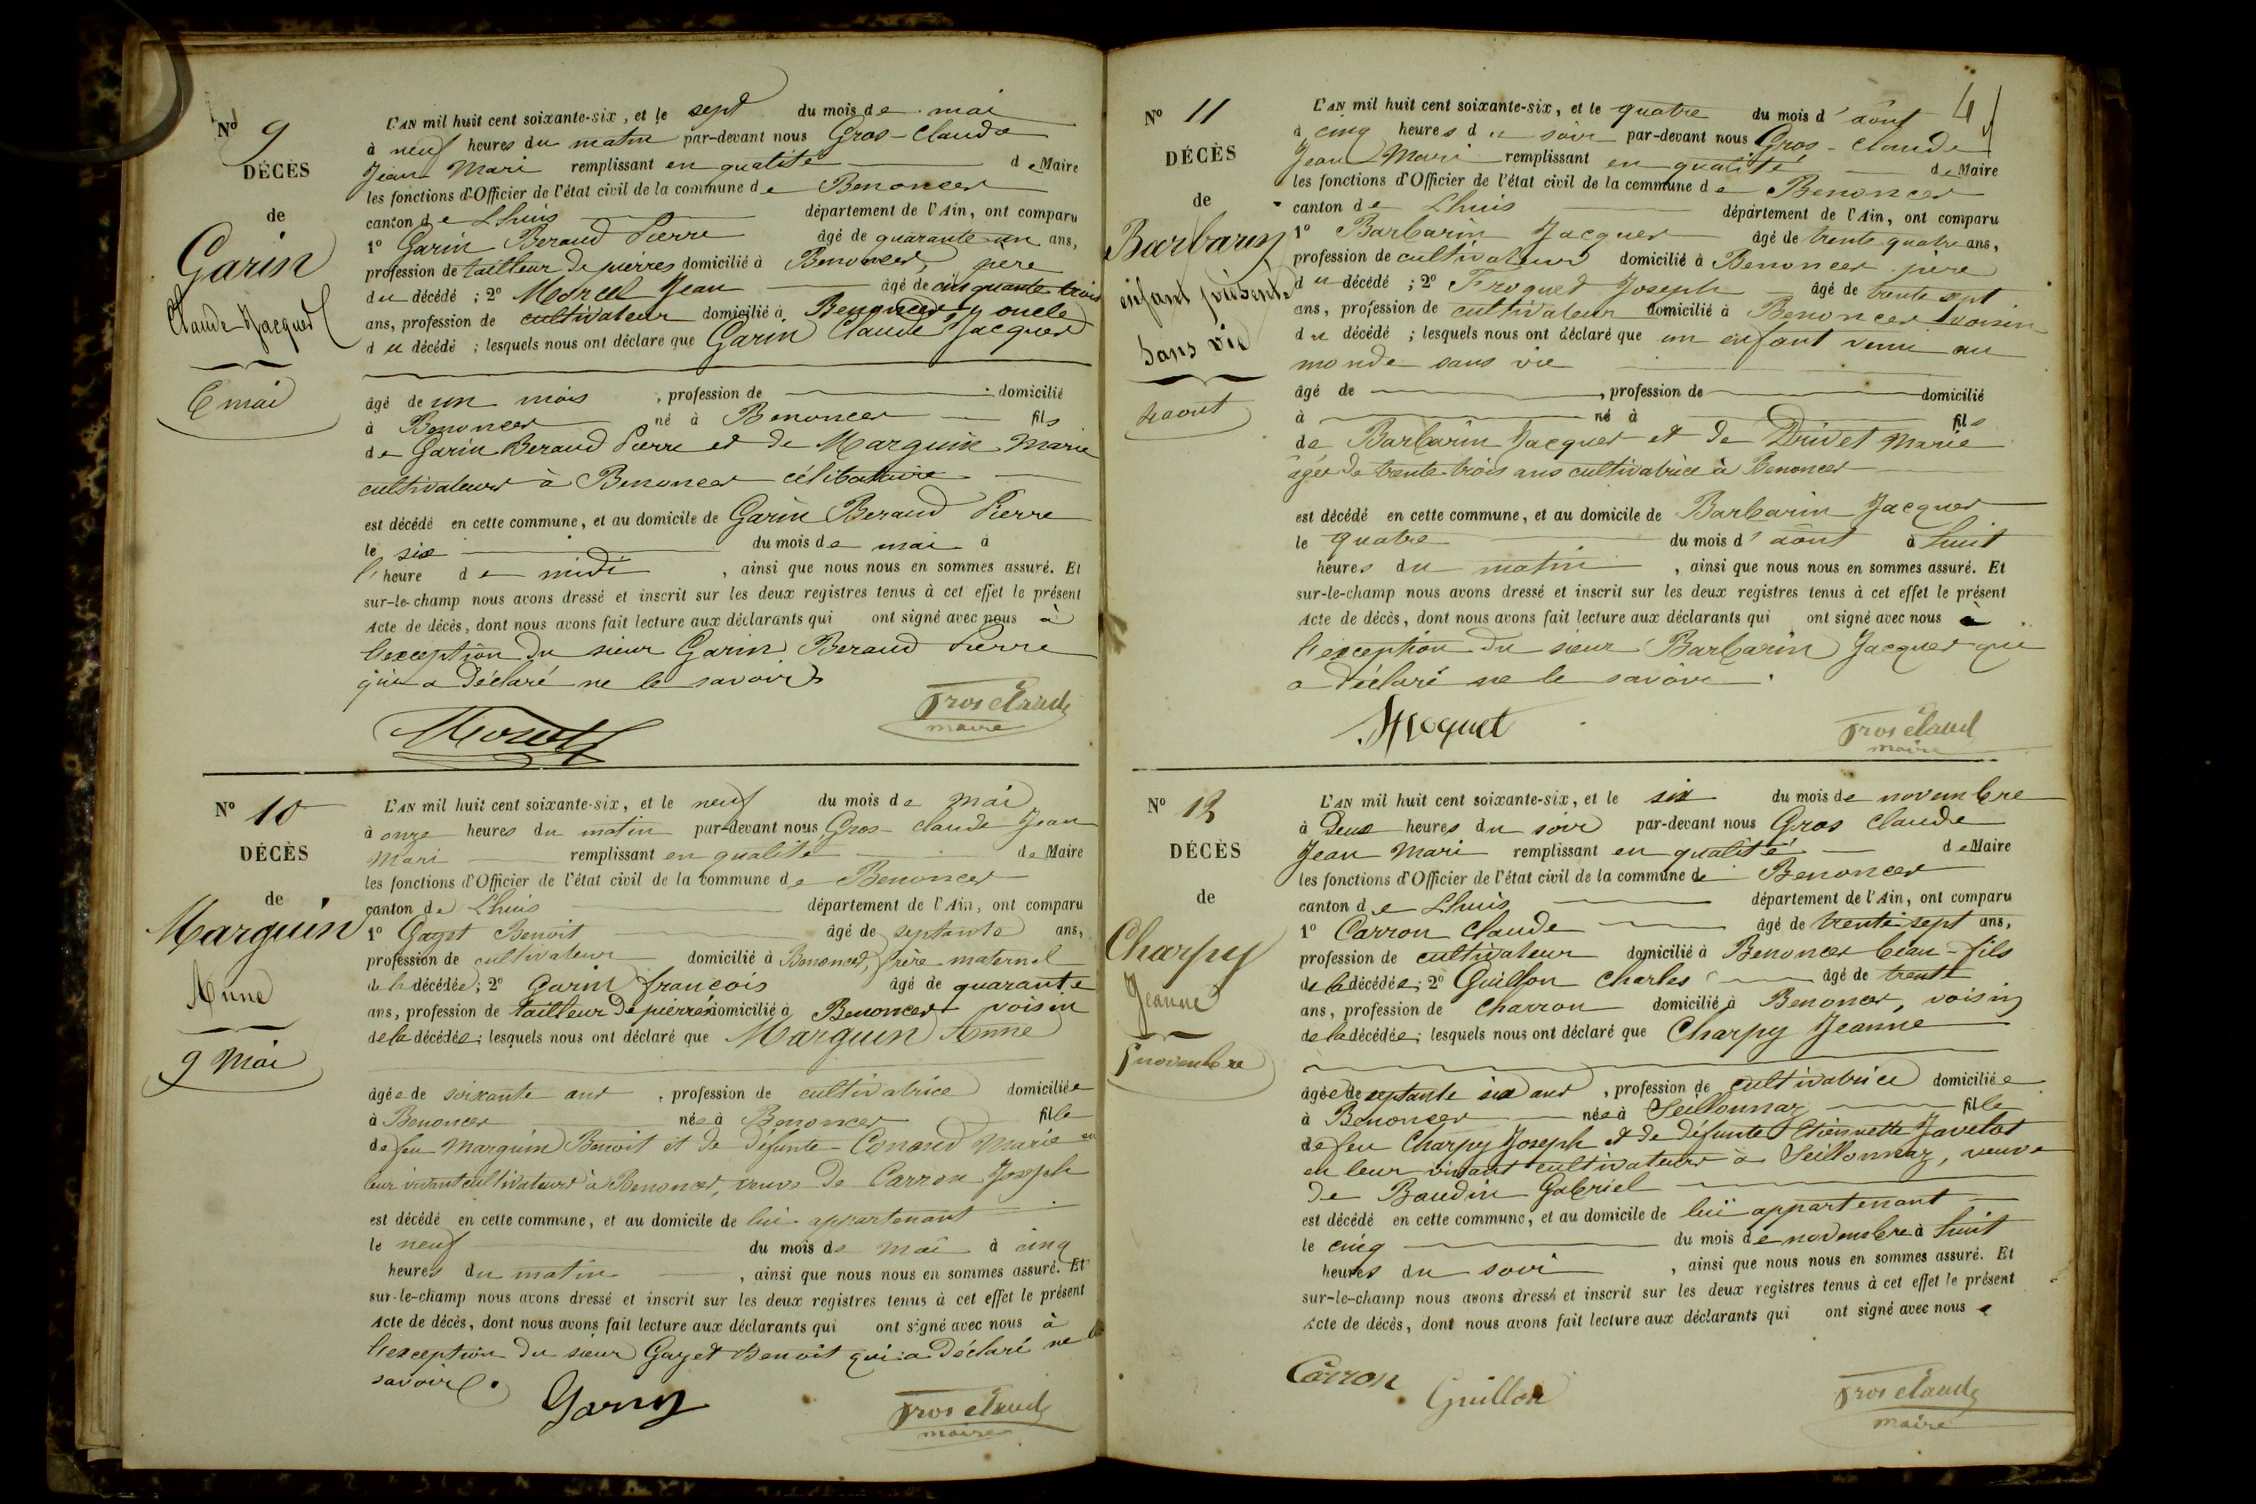 Nº 9
DÉCÈS
de
Garin
Claude Jacques
6 mai
L'AN mil huit cent soixante-six, et le sept du mois de mai
à neuf heures du matin par-devant nous Gros-Claude
Jean Mari remplissant en qualité de Maire
les fonctions d'Officier de l'état civil de la commune de Benonces
canton de Lhuis département de l'Ain, ont comparu
1º Garin Beraud Pierre âgé de quarante un ans,
profession de tailleur de pierres domicilié à Benonces, père
du décédé ; 2º Morcel Jean âgé de cinquante trois
ans, profession de cultivateur domicilié à Benonces, oncle
du décédé ; lesquels nous ont déclaré que Garin Claude Jacques
âgé de un mois, profession de domicilié
à Benonces né à Benonces fils
de Garin Beraud Pierre et de Marguin Marie
cultivateurs à Benonces célibataire
est décédé en cette commune, et au domicile de Garin Beraud Pierre
le six du mois de mai à
l'heure de midi, ainsi que nous nous en sommes assuré. Et
sur-le-champ nous avons dressé et inscrit sur les deux registres tenus à cet effet le présent
Acte de décès, dont nous avons fait lecture aux déclarants qui ont signé avec nous à
l'exception du sieur Garin Beraud Pierre
qui a déclaré ne le savoir
Groselaude
maire
Nº 10
DÉCÈS
de
Marguin
Anne
9 Mai
L'AN mil huit cent soixante-six, et le neuf du mois de mai
à onze heures du matin par-devant nous Gros-claude Jean
Mari remplissant en qualité de Maire
les fonctions d'Officier de l'état civil de la commune de Benonces
canton de Lhuis département de l'Ain, ont comparu
1º Gayet Benoit âgé de septante ans,
profession de cultivateur domicilié à Benonces, frère maternel
de la décédée ; 2º Garin françois âgé de quarante
ans, profession de tailleur de pierres domicilié à Benonces voisin
de la décédée ; lesquels nous ont déclaré que Marguin Anne
âgée de soixante ans, profession de cultivatrice domiciliée
à Benonces née à Benonces fille
de feu Marguin Benoit et de défunte Conand Marie en
leur vivant cultivateurs à Benonces, veuve de Carron Joseph
est décédé en cette commune, et au domicile de lui appartenant
le neuf du mois de mai à cinq
heures du matin, ainsi que nous nous en sommes assuré. Et
sur-le-champ nous avons dressé et inscrit sur les deux registres tenus à cet effet le présent
Acte de décès, dont nous avons fait lecture aux déclarants qui ont signé avec nous à
l'exception du sieur Gayet Benoit qui a déclaré ne le
savoir.
Garin
Groselaude
maire
Nº 11
DÉCÈS
de
Barbarin
enfant présenté
sans vie
4 aout
L'AN mil huit cent soixante-six, et le quatre du mois d'août
à cinq heures du soir par-devant nous Gros-Claude
Jean Mari remplissant en qualité de Maire
les fonctions d'Officier de l'état civil de la commune de Benonces
canton de Lhuis département de l'Ain, ont comparu
1º Barbarin Jacques âgé de trente quatre ans,
profession de cultivateur domicilié à Benonces père
du décédé ; 2º Froquet Joseph âgé de trente sept
ans, profession de cultivateur domicilié à Benonces voisin
du décédé ; lesquels nous ont déclaré que un enfant venu au
monde sans vie
âgé de, profession de domicilié
à né à fils
de Barbarin Jacques et de Drivet Marie
âgée de trente trois ans cultivatrice à Benonces
est décédé en cette commune, et au domicile de Barbarin Jacques
le quatre du mois d'août à huit
heures du matin, ainsi que nous nous en sommes assuré. Et
sur-le-champ nous avons dressé et inscrit sur les deux registres tenus à cet effet le présent
Acte de décès, dont nous avons fait lecture aux déclarants qui ont signé avec nous à
l'exception du sieur Barbarin Jacques qui
a déclaré ne le savoir.
Froquet
Groselaude
maire
Nº 12
DÉCÈS
de
Charpy
Jeanne
5 novembre
L'AN mil huit cent soixante-six, et le six du mois de novembre
à deux heures du soir par-devant nous Gros Claude
Jean Mari remplissant en qualité de Maire
les fonctions d'Officier de l'état civil de la commune de Benonces
canton de Lhuis département de l'Ain, ont comparu
1º Carron Claude âgé de trente sept ans,
profession de cultivateur domicilié à Benonces beau-fils
de la décédée ; 2º Guillon Charles âgé de trente
ans, profession de charron domicilié à Benonces, voisin
de la décédée ; lesquels nous ont déclaré que Charpy Jeanne
âgée de septante six ans, profession de cultivatrice domiciliée
à Benonces née à Seillonnaz fille
de feu Charpy Joseph et de défunte Etiennette Javelot
en leur vivant cultivateurs à Seillonnaz, veuve
de Baudin Gabriel
est décédé en cette commune, et au domicile de lui appartenant
le cinq du mois de novembre à huit
heures du soir, ainsi que nous nous en sommes assuré. Et
sur-le-champ nous avons dressé et inscrit sur les deux registres tenus à cet effet le présent
Acte de décès, dont nous avons fait lecture aux déclarants qui ont signé avec nous
Carron
Guillon
Groselaude
maire